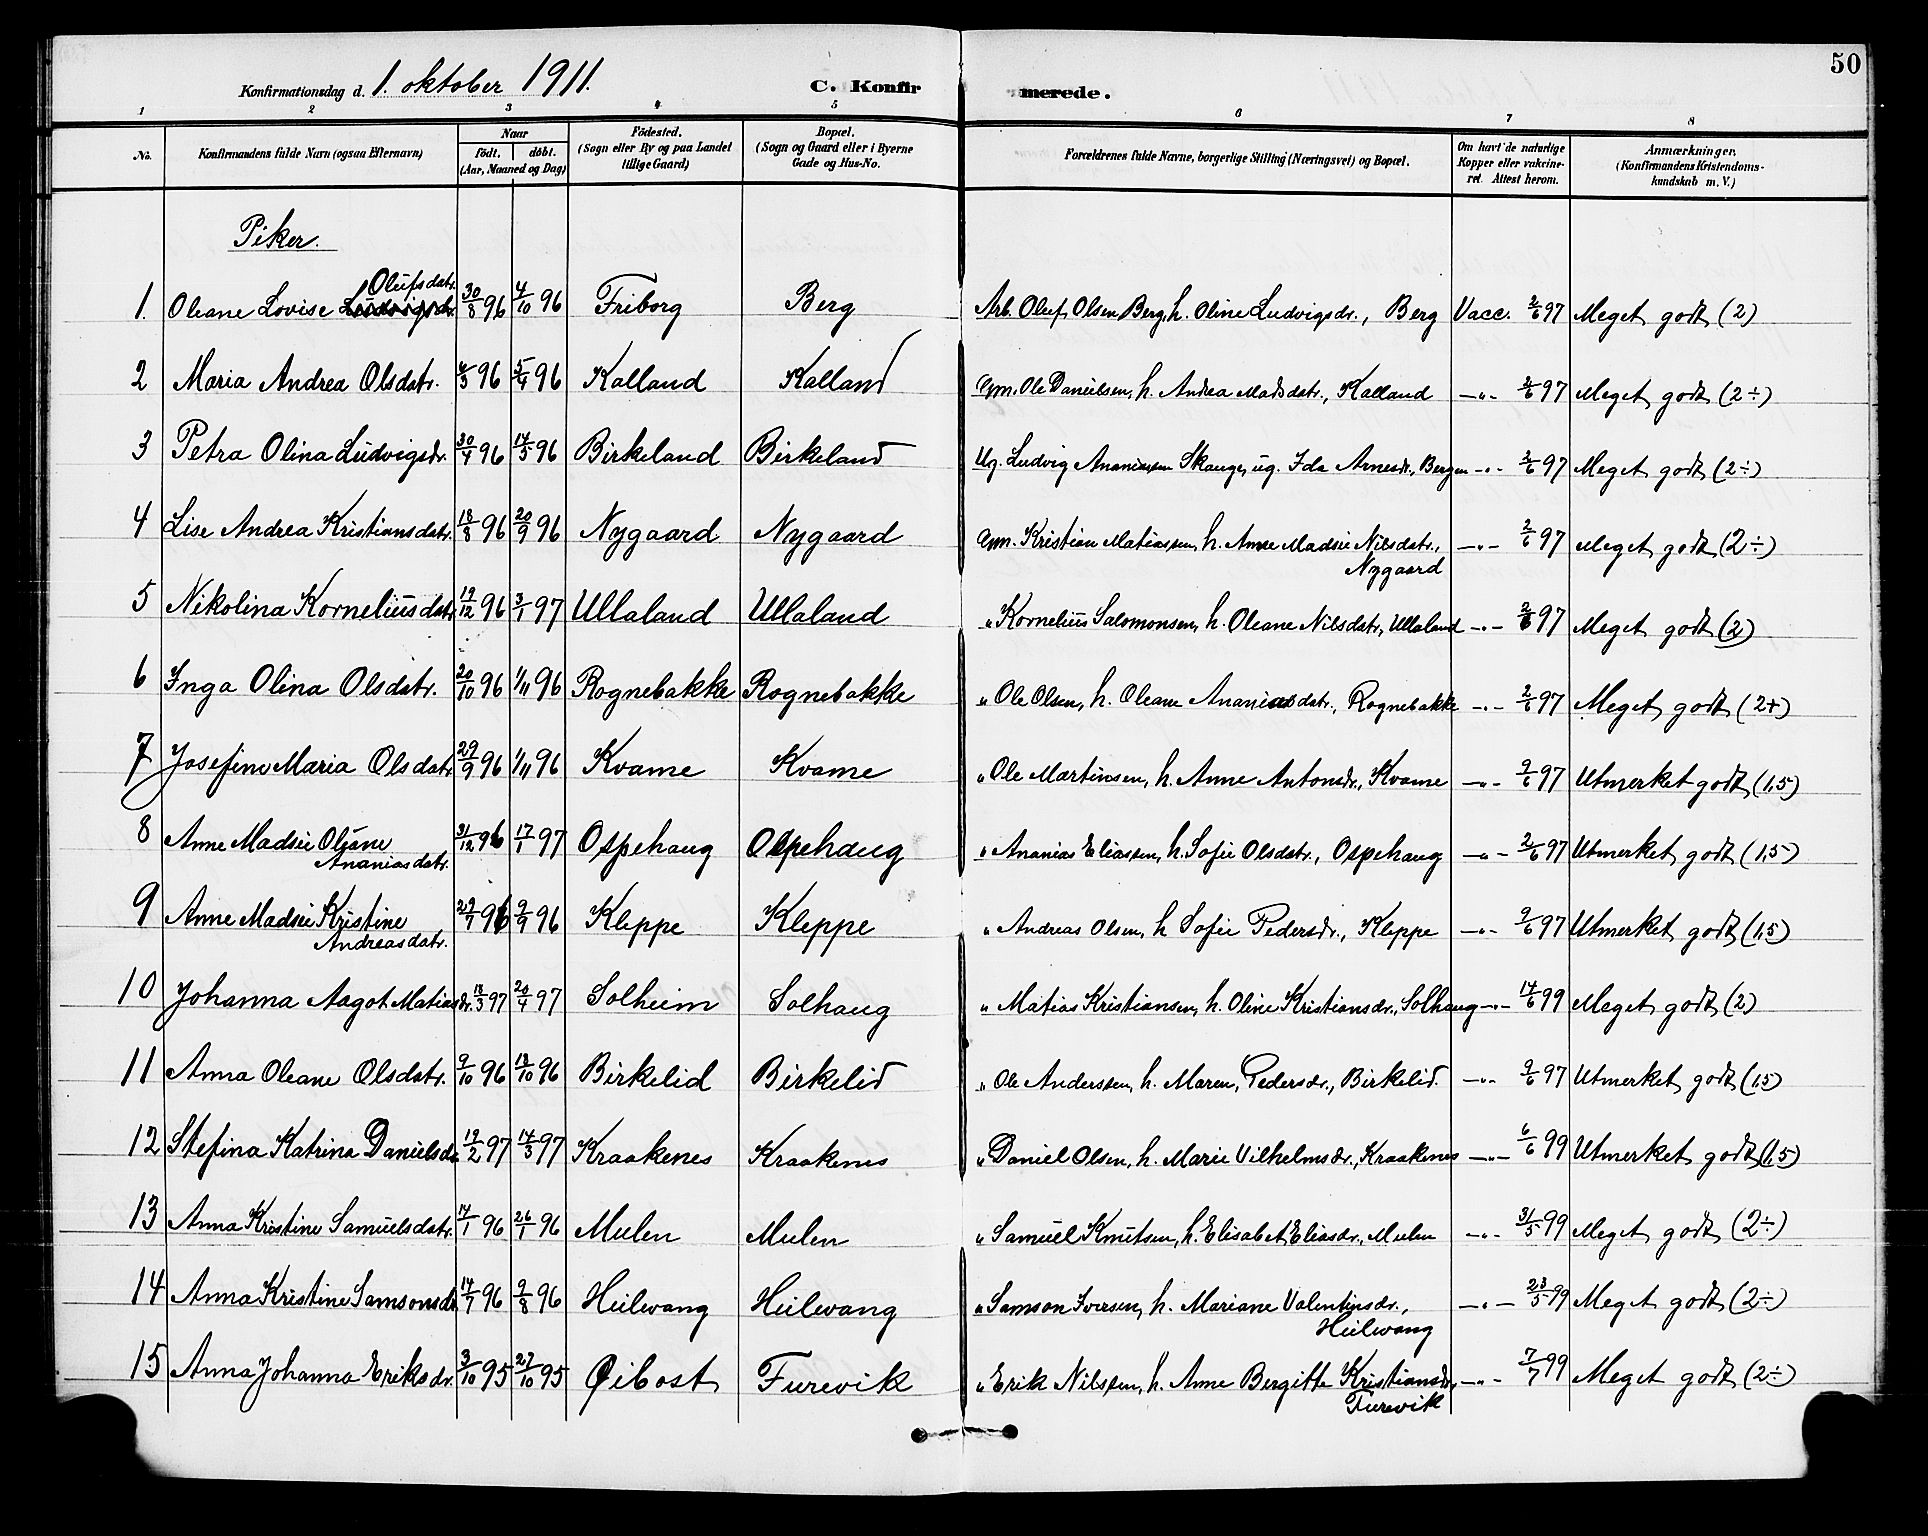 50
Konfirmationsdag d. 1. oktober 1911. C. Konfirmerede.
1 2 3 4 5 6 7 8
No. Konfirmandens fulde Navn (ogsaa Efternavn) Naar født. døbt. (Aar, Maaned og Dag) Fødested. (Sogn eller By og paa Landet tillige Gaard) Bopæl. (Sogn og Gaard eller i Byerne Gade og Hus-No. Forældrenes fulde Navne, borgerlige Stilling (Næringsvei) og Bopæl. Om havt de naturlige Kopper eller vakcineret. Attest herom. Anmærkninger. (Konfirmandens Kristendomskundskab m. V.)
Piker.
Olufsdatr.
1. Oleane Lovise Ludvigsdr. 30/8 96 4/10 96 Friborg Berg Arb. Oluf Olsen Berg, h. Oline Ludvigsdr., Berg Vacc. 2/6 97 Meget godt (2)
2 Maria Andrea Olsdatr. 4/3 96 5/4 96 Kalland Kalland Gm. Ole Danielsen, h. Andrea Madsdatr., Kalland —"— 2/6 97 Meget godt (2÷)
3 Petra Olina Ludvigsdr. 30/4 96 14/5 96 Birkeland Birkeland Ug. Ludvig Ananiassen Skauge, ug. Ida Arnesdr., Bergen —"— 2/6 97 Meget godt (2÷)
4 Lise Andrea Kristiansdatr. 18/8 96 20/9 96 Nygaard Nygaard Gm. Kristian Matiassen, h. Anne Madsie Nilsdatr., —"— 2/6 97 Meget godt (2÷)
Nygaard
5 Nikolina Korneliusdatr. 19/12 96 3/1 97 Ullaland Ullaland " Kornelius Salomonsen, h. Oleane Nilsdatr., Ullaland —"— 2/6 97 Meget godt (2)
6 Inga Olina Olsdatr. 20/10 96 1/11 96 Rognebakke Rognebakke " Ole Olsen, h. Oleane Ananiasdatr., Rognebakke —"— 2/6 97 Meget godt (2+)
7 Josefine Maria Olsdatr. 29/9 96 1/11 96 Kvame Kvame " Ole Martinsen, h. Anne Antonsdr., Kvame —"— 2/6 97 Utmerket godt (1,5)
8 Anne Madsie Oleane 31/12 96 17/1 97 Ospehaug Ospehaug " Ananias Eliassen, h. Sofie Olsdatr., Ospehaug —"— 2/6 97 Utmerket godt (1,5)
Ananiasdatr.
9 Anne Madsie Kristine 29/7 96 9/9 96 Kleppe Kleppe " Andreas Olsen, h Sofie Pedersdr., Kleppe —"— 2/6 97 Utmerket godt (1,5)
Andreasdatr.
10 Johanna Aagot Matiasdr. 18/3 97 20/4 97 Solheim Solhaug " Matias Kristiansen, h. Oline Kristiansdr., Solhaug —"— 14/6 99 Meget godt (2)
11 Anna Oleane Olsdatr. 9/10 96 18/10 96 Birkelid Birkelid " Ole Anderssen, h. Maren Pedersdr., Birkelid. —"— 2/6 97 Utmerket godt (1,5)
12 Stefina Katrina Danielsdr. 19/2 97 14/3 97 Kraakenes Kraakenes " Daniel Olsen, h. Marie Vilhelmsdr., Kraakenes —"— 6/6 99 Utmerket godt (1,5)
13 Anna Kristine Samuelsdatr. 14/1 96 26/1 96 Mulen Mulen " Samuel Knutsen, h. Elisabet Eliasdr., Mulen —"— 31/5 99 Meget godt (2÷)
14 Anna Kristine Samsonsdr. 14/7 96 9/8 96 Heilevang Heilevang " Samson Iversen, h. Mariane Valentinsdr., —"— 23/5 99 Meget godt (2÷)
Heilevang
15 Anna Johanna Eriksdr. 3/10 95 27/10 95 Øibost Furevik " Erik Nilssen, h. Anne Bergitte Kristiansdr., —"— 7/7 99 Meget godt (2÷)
Furevik